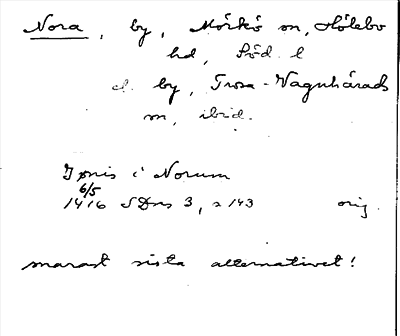 Nora, by, Mörkö sn, Hölebo
hd, Söd. l
el. by, Trosa-Vagnhärads
sn, ibid.
Jønis i Norum
6/5
1416 SDns 3, s 143 orig.
snarast sista alternativet!